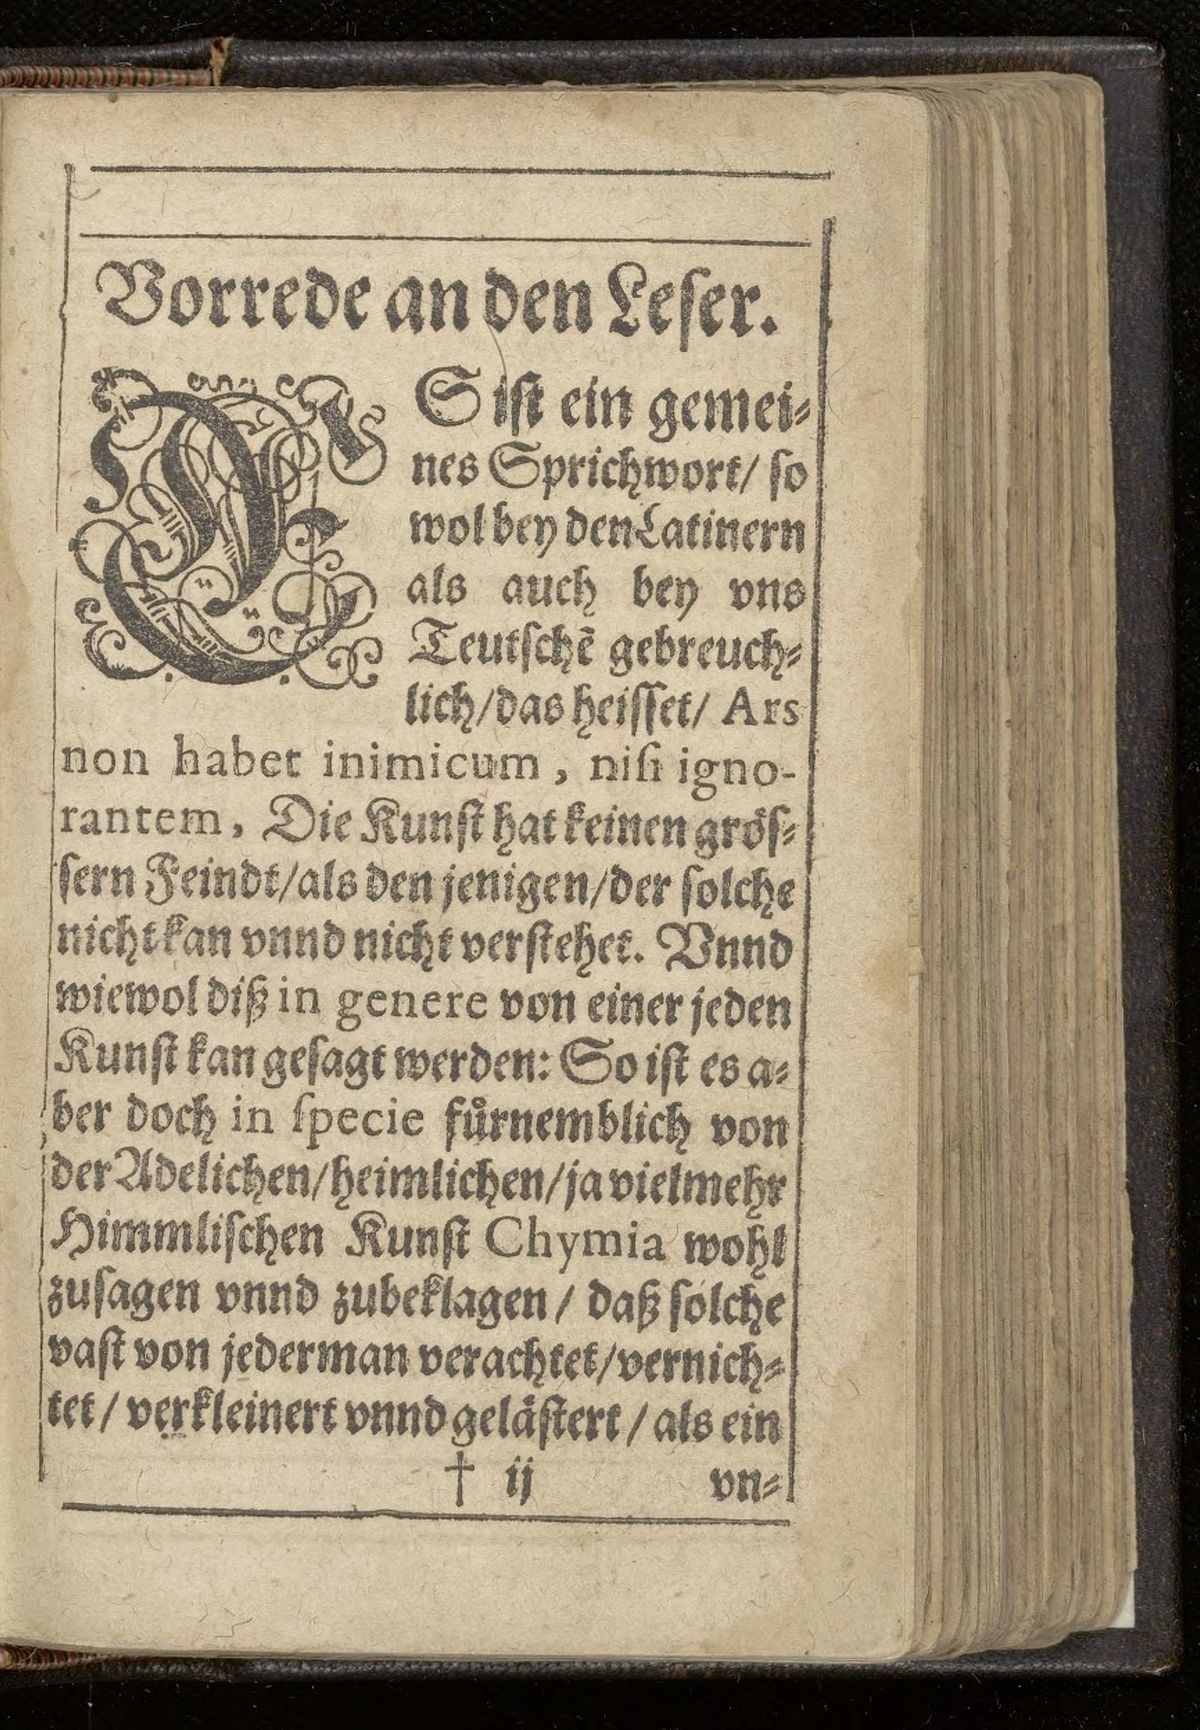 Vorrede an den Leser.
ES ist ein gemei⸗
nes Sprichwort/ so
wol bey den Latinern
als auch bey vns
Teutschẽ gebreuch⸗
lich/das heisset/ Ars
non habet inimicum, nisi igno-
rantem, Die Kunst hat keinen grös⸗
sern Feindt/als den jenigen/der solche
nicht kan vnnd nicht verstehet. Vnnd
wiewol diß in genere von einer jeden
Kunst kan gesagt werden: So ist es a⸗
ber doch in specie fůrnemblich von
der Adelichen/heimlichen/ja vielmehr
Himmlischen Kunst Chymia wohl
zusagen vnnd zubeklagen/ daß solche
vast von jederman verachtet/vernich⸗
tet/ verkleinert vnnd gelästert/ als ein
† ij vn⸗